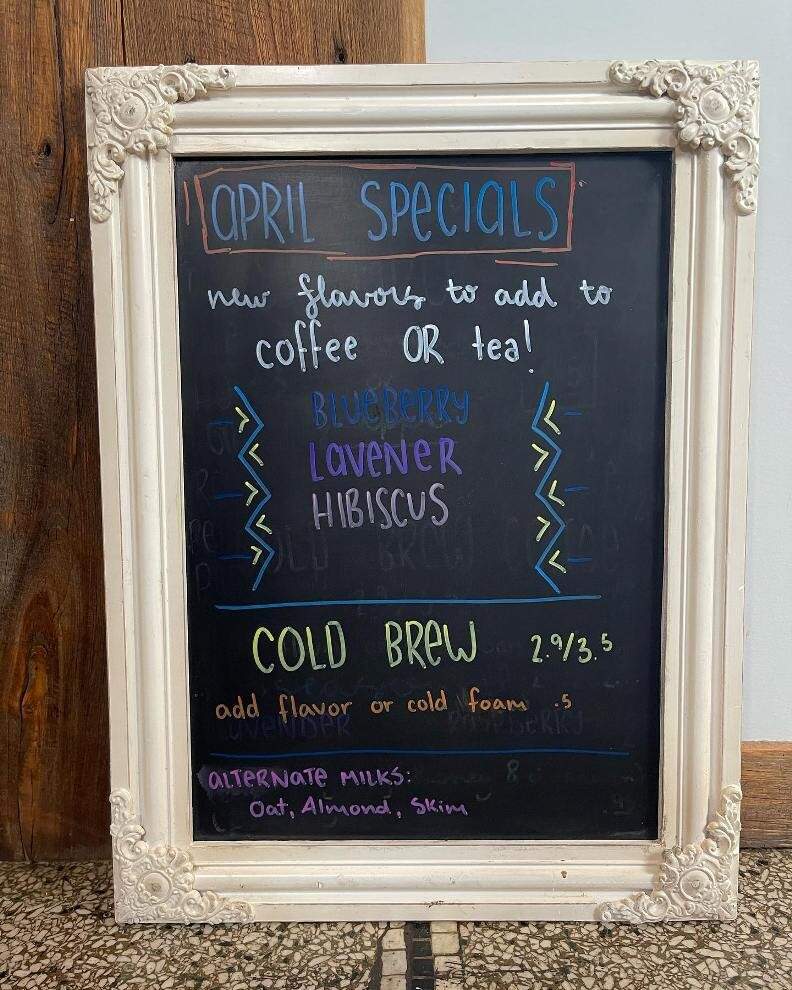 APRIL SPECIALS
new flavors to add to
coffee OR tea!
BLUEBERRY
LAVENER
HIBISCUS
COLD BREW 2.9/3.5
add flavor or cold foam .5
ALTERNATE MILKS:
Oat, Almond, Skim